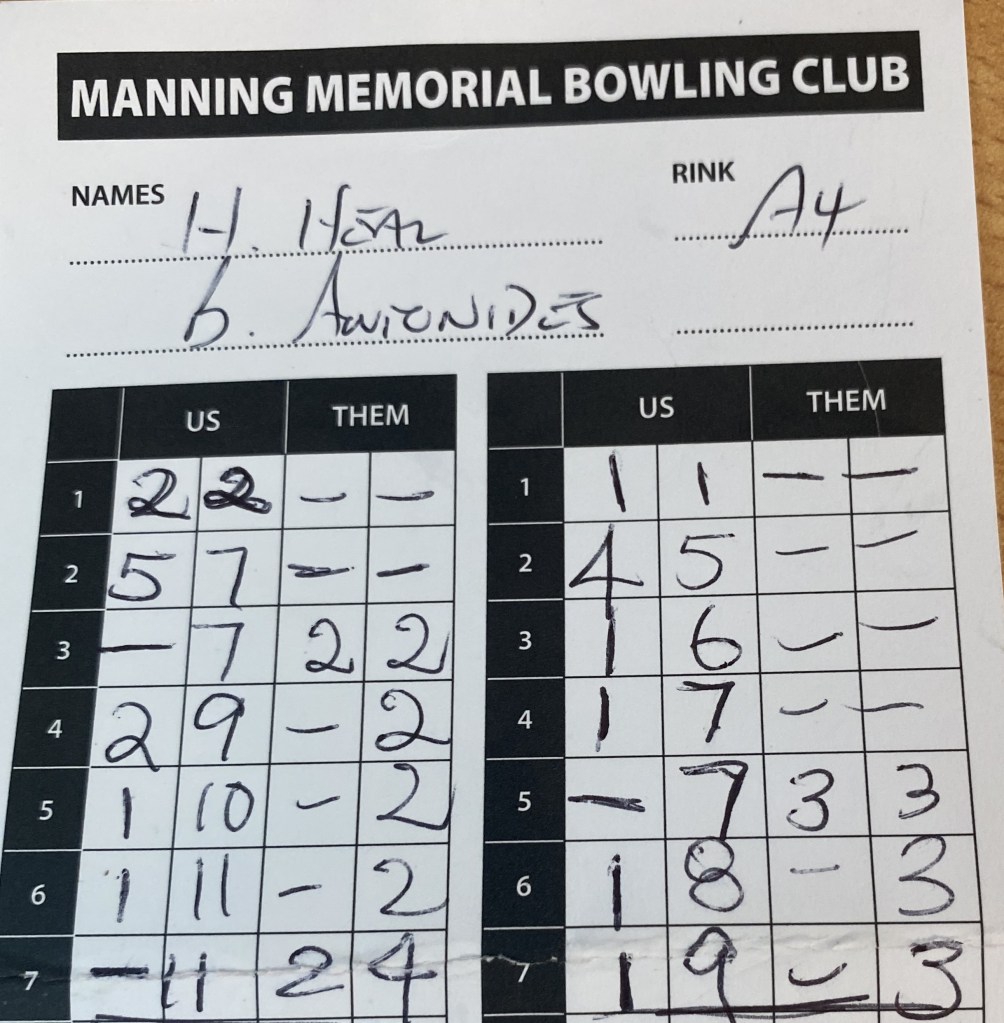 MANNING MEMORIAL BOWLING CLUB
NAMES H. HEAL RINK A4
b. ANTONIDES
US THEM US THEM
1 2 2 – – 1 1 1 – –
2 5 7 – – 2 4 5 – –
3 – 7 2 2 3 1 6 – –
4 2 9 – 2 4 1 7 – –
5 1 10 – 2 5 – 7 3 3
6 1 11 – 2 6 1 8 – 3
7 – 11 2 4 7 1 9 – 3